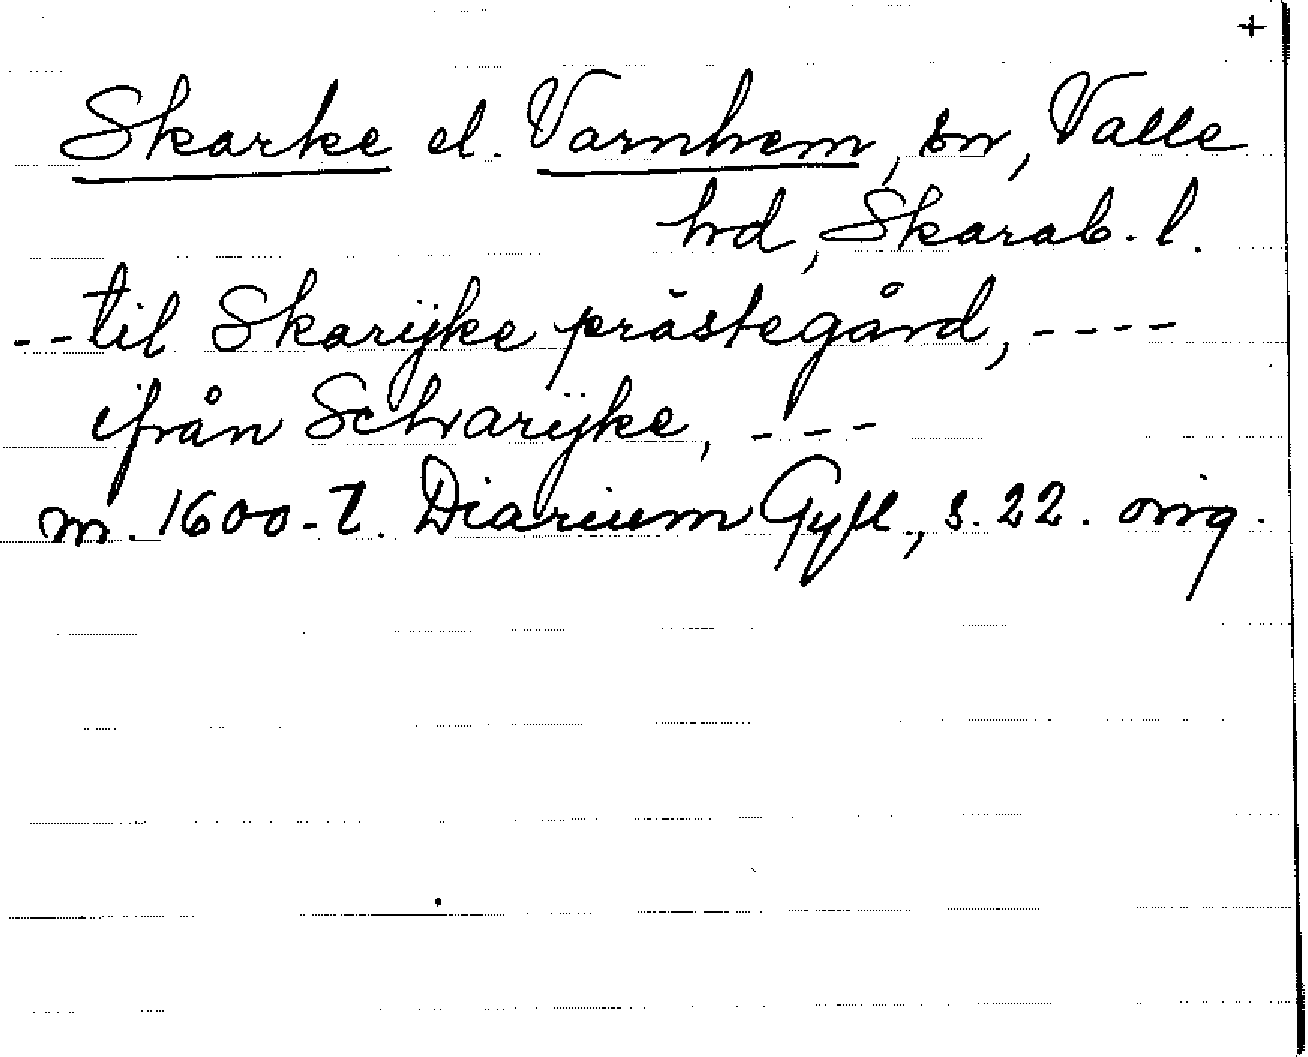 +
Skarke el. Varnhem, sn, Valle
hd, Skarab. l.
-- til Skarijke prästegård, ----
ifrån Schvarijke, ---
m. 1600-t. Diarium Gyll., s. 22. orig.